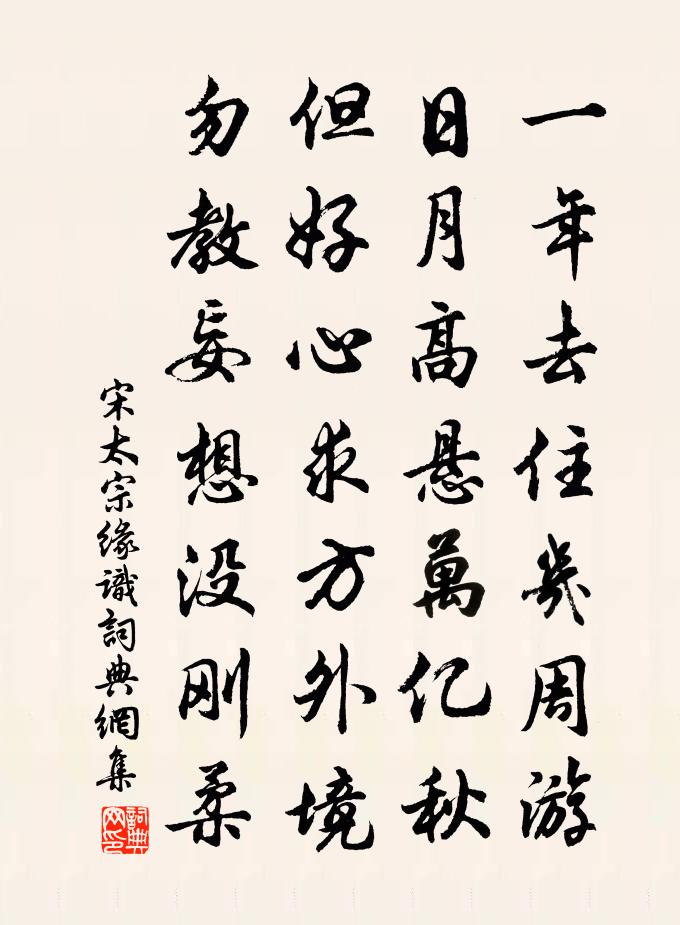 一年去住幾周游
日月高悬萬亿秋
但好心求方外境
勿教妄想没刚柔
宋太宗缘識詞典網集
詞典網印